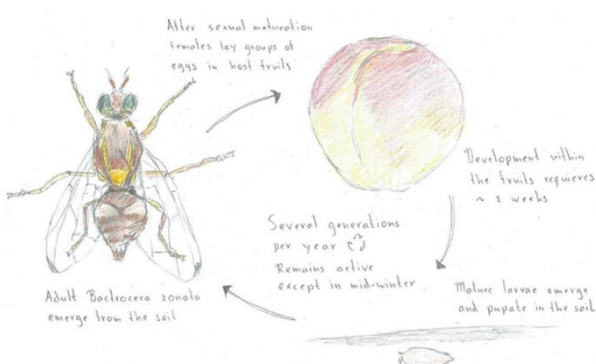 After sexual maturation
females lay groups of
eggs in host fruits
Development within
the fruits requieres
~ 2 weeks
Several generations
per year
Remains active
except in mid-winter
Mature larvae emerge
and pupate in the soil
Adult Bactrocera zonata
emerge from the soil